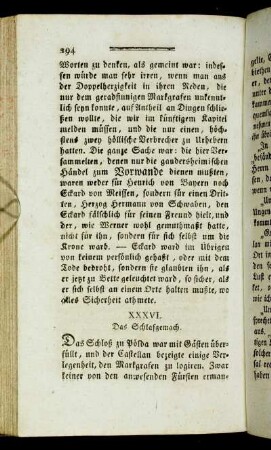 194
Worten zu denken, als gemeint war: indes-
sen würde man sehr irren, wenn man aus
der Doppelherzigkeit in ihren Reden, die
nur dem geradsinnigen Markgrafen unkennt-
lich seyn konnte, auf Antheil an Dingen schlie-
ßen wollte, die wir im künftigem Kapitel
melden müssen, und die nur einen, höch-
stens zwey höllische Verbrecher zu Urhebern
hatten. Die ganze Sache war: die hier Ver-
sammelten, denen nur die gandersheimischen
Händel zum Vorwande dienen mußten,
waren weder für Heinrich von Bayern noch
Eckard von Meissen, sondern für einen Drit-
ten, Herzog Hermann von Schwaben, den
Eckard fälschlich für seinen Freund hielt, und
der, wie Werner wohl gemuthmaßt hatte,
nicht für ihn, sondern für sich selbst um die
Krone warb. — Eckard ward im Übrigen
von keinem persönlich gehaßt, oder mit dem
Tode bedroht, sondern sie glaubten ihn, als
er jetzt zu Bette geleuchtet ward, so sicher, als
er sich selbst an einem Orte halten mußte, wo
alles Sicherheit athmete.
XXXVI.
Das Schlafgemach.
Das Schloß zu Pölda war mit Gästen über-
füllt, und der Castellan bezeigte einige Ver-
legenheit, den Markgrafen zu logiren. Zwar
keiner von den anwesenden Fürsten erman-